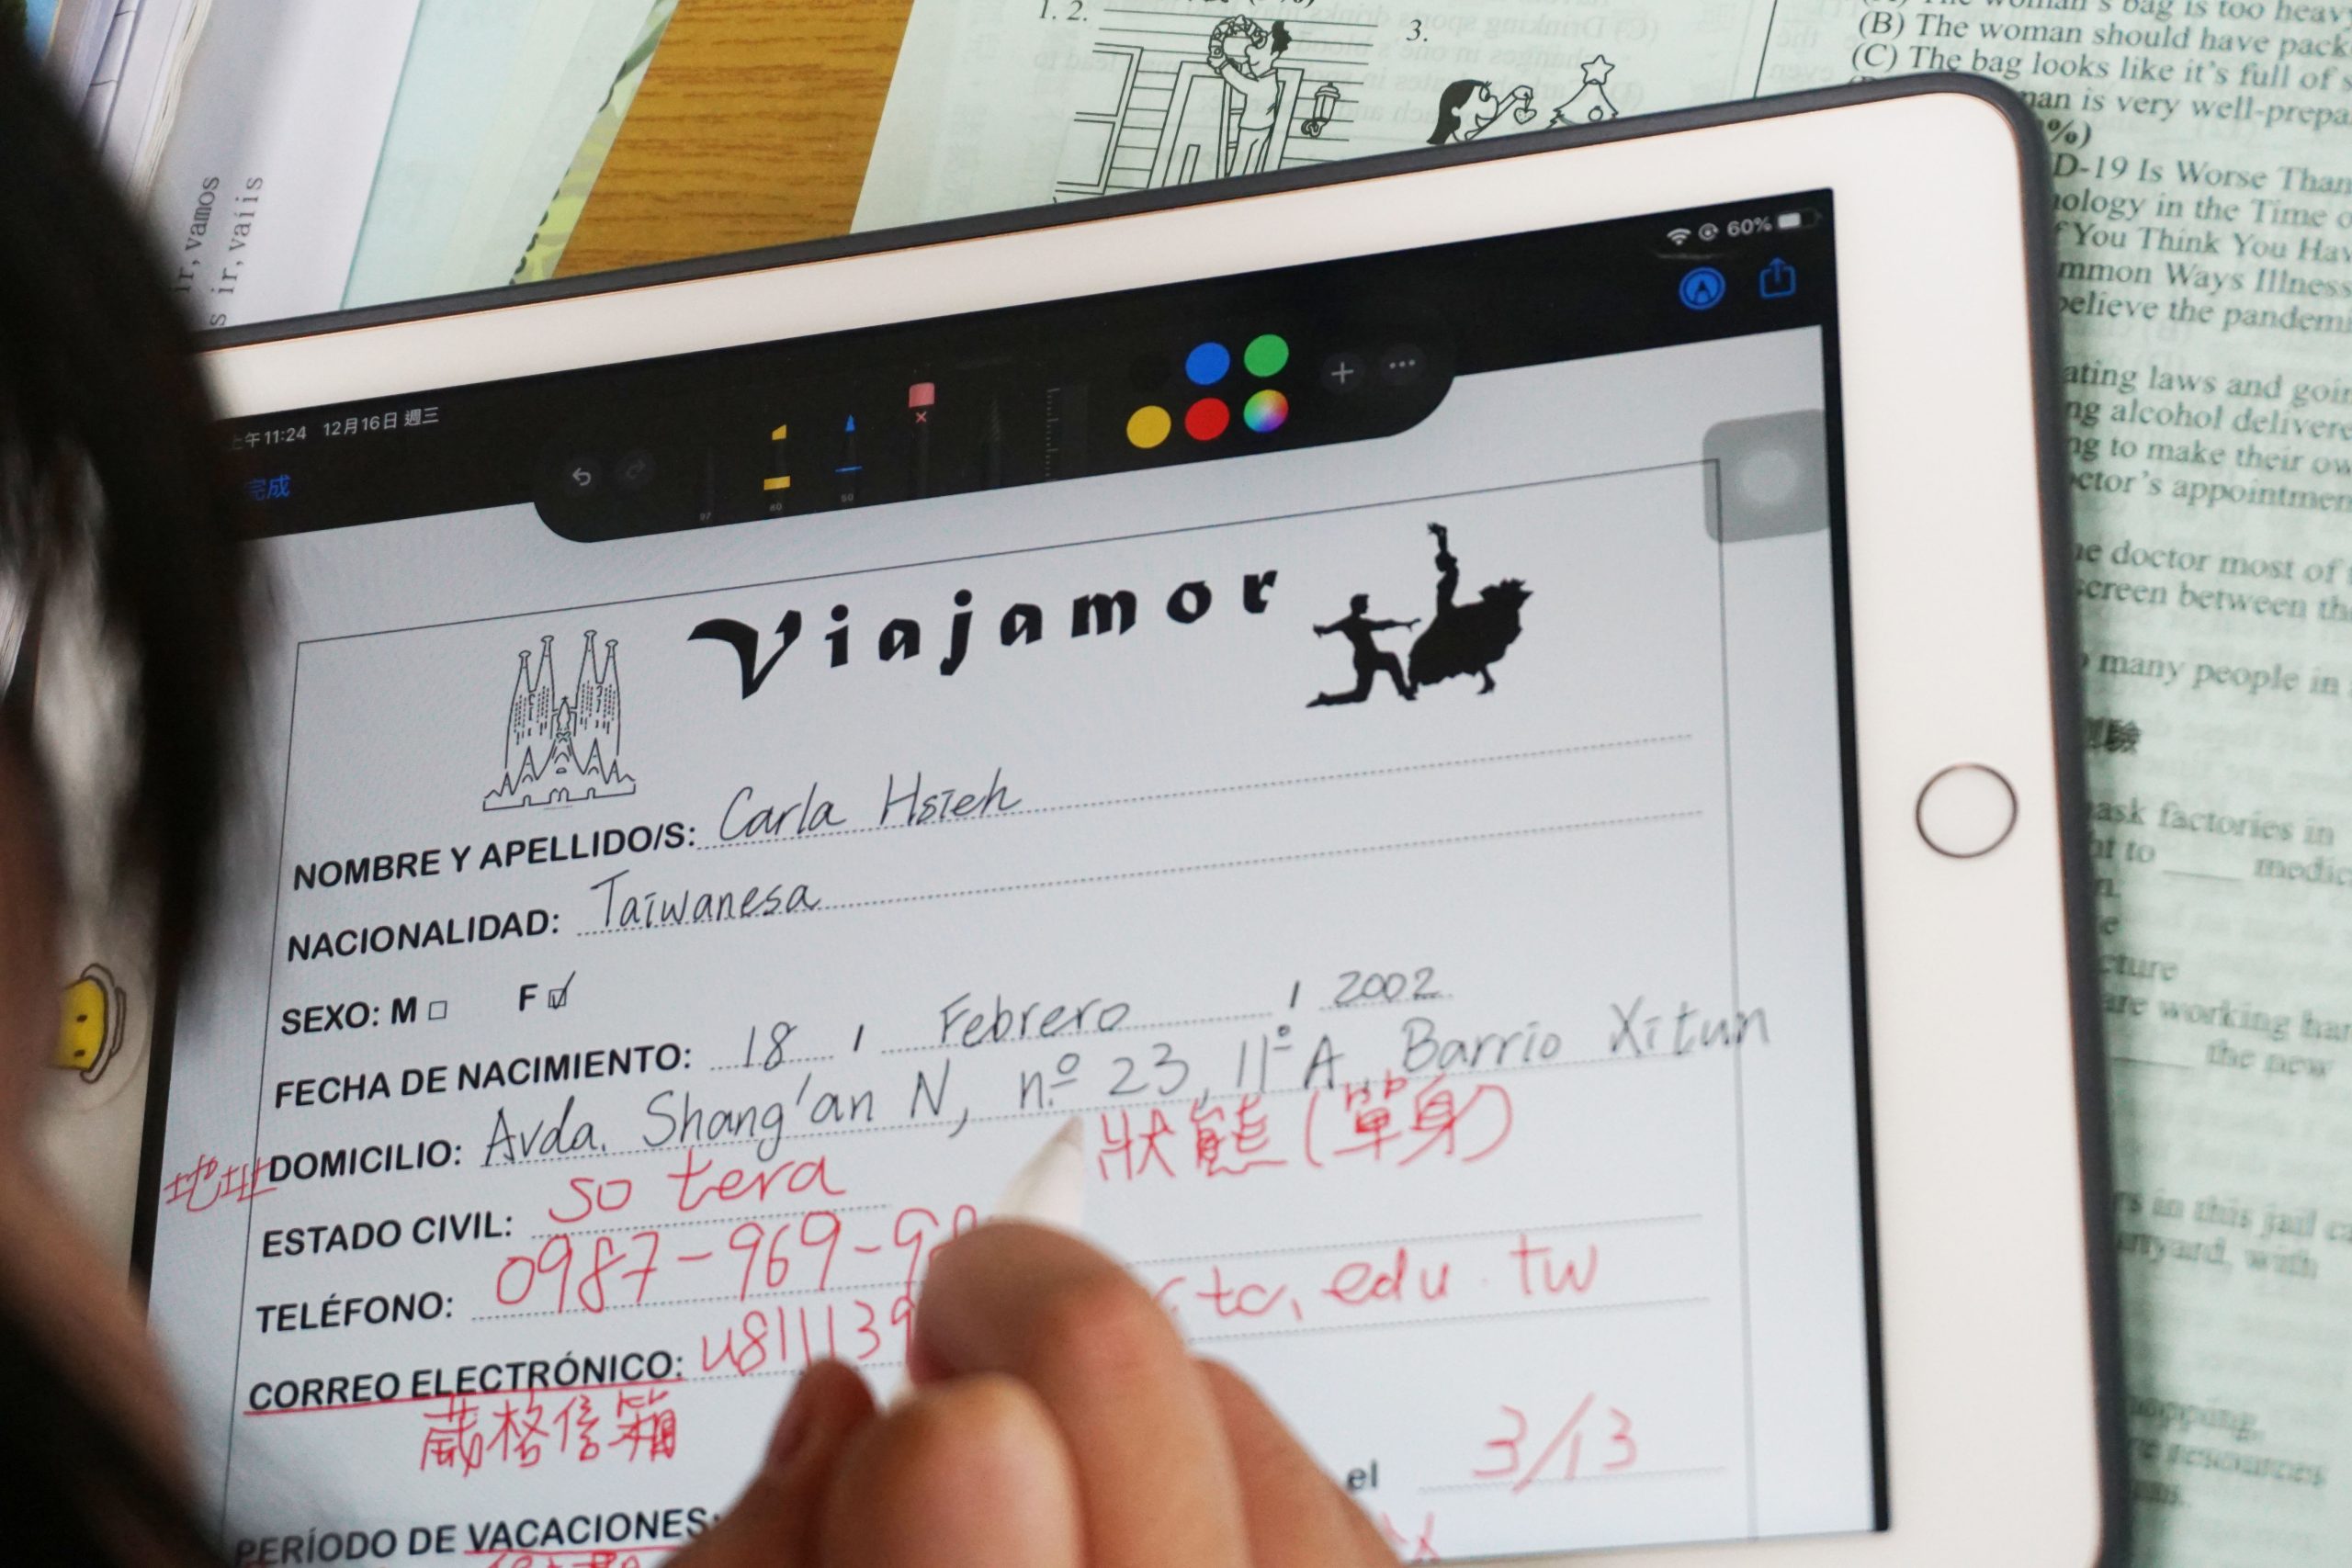 1. 2.
3.
(B) The woman should have
(C) The bag looks like it's full of
man is very well-prepa
%)
D-19 Is Worse Than
ology in the Time
You Think You Hav
mmon Ways Illness
believe the pandemi
ating laws and goin
ng alcohol delivere
ng to make their ow
ctor's appointmen
he doctor most of
screen between th
many people in
驗
mask factories in
ht to ____ medic
cture
are working har
____ the new
rs in this jail
, with
ir, vamos
ir, vaíis
60%
上午11:24 12月16日 週三
完成
97 80 50
Viajamor
NOMBRE Y APELLIDO/S: Carla Hsieh
NACIONALIDAD: Taiwanesa
SEXO: M □ F ☑
FECHA DE NACIMIENTO: 18 / Febrero / 2002
DOMICILIO: Avda. Shang'an N, n.º 23, 11º A, Barrio Xitun
地址
狀態(單身)
ESTADO CIVIL: so tera
TELÉFONO: 0987-969-9
CORREO ELECTRÓNICO: u811139 .tc.edu.tw
格信箱
el 3/13
PERÍODO DE VACACIONES: